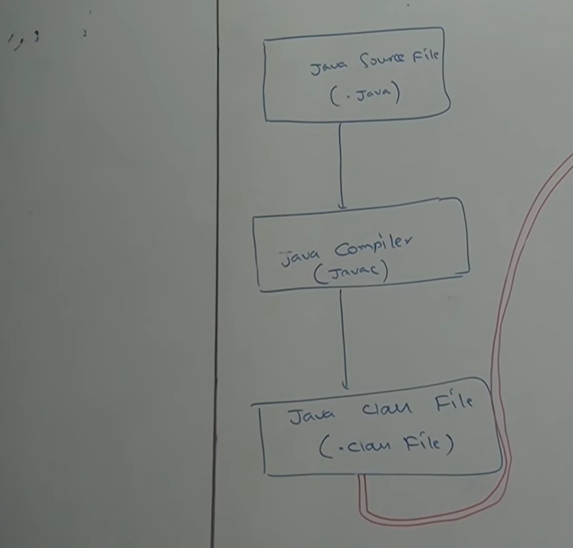 Java Source File
(.Java)
Java Compiler
(Javac)
Java Class File
(.class File)